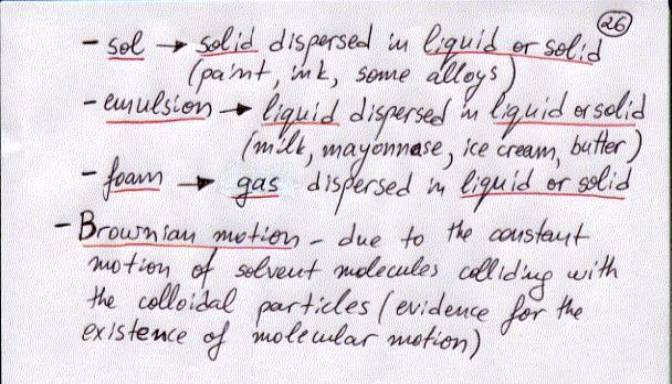 26
- sol → solid dispersed in liquid or solid
(paint, ink, some alloys)
- emulsion → liquid dispersed in liquid or solid
(milk, mayonnase, ice cream, butter)
- foam → gas dispersed in liquid or solid
- Brownian motion - due to the constant
motion of solvent molecules colliding with
the colloidal particles (evidence for the
existence of molecular motion)